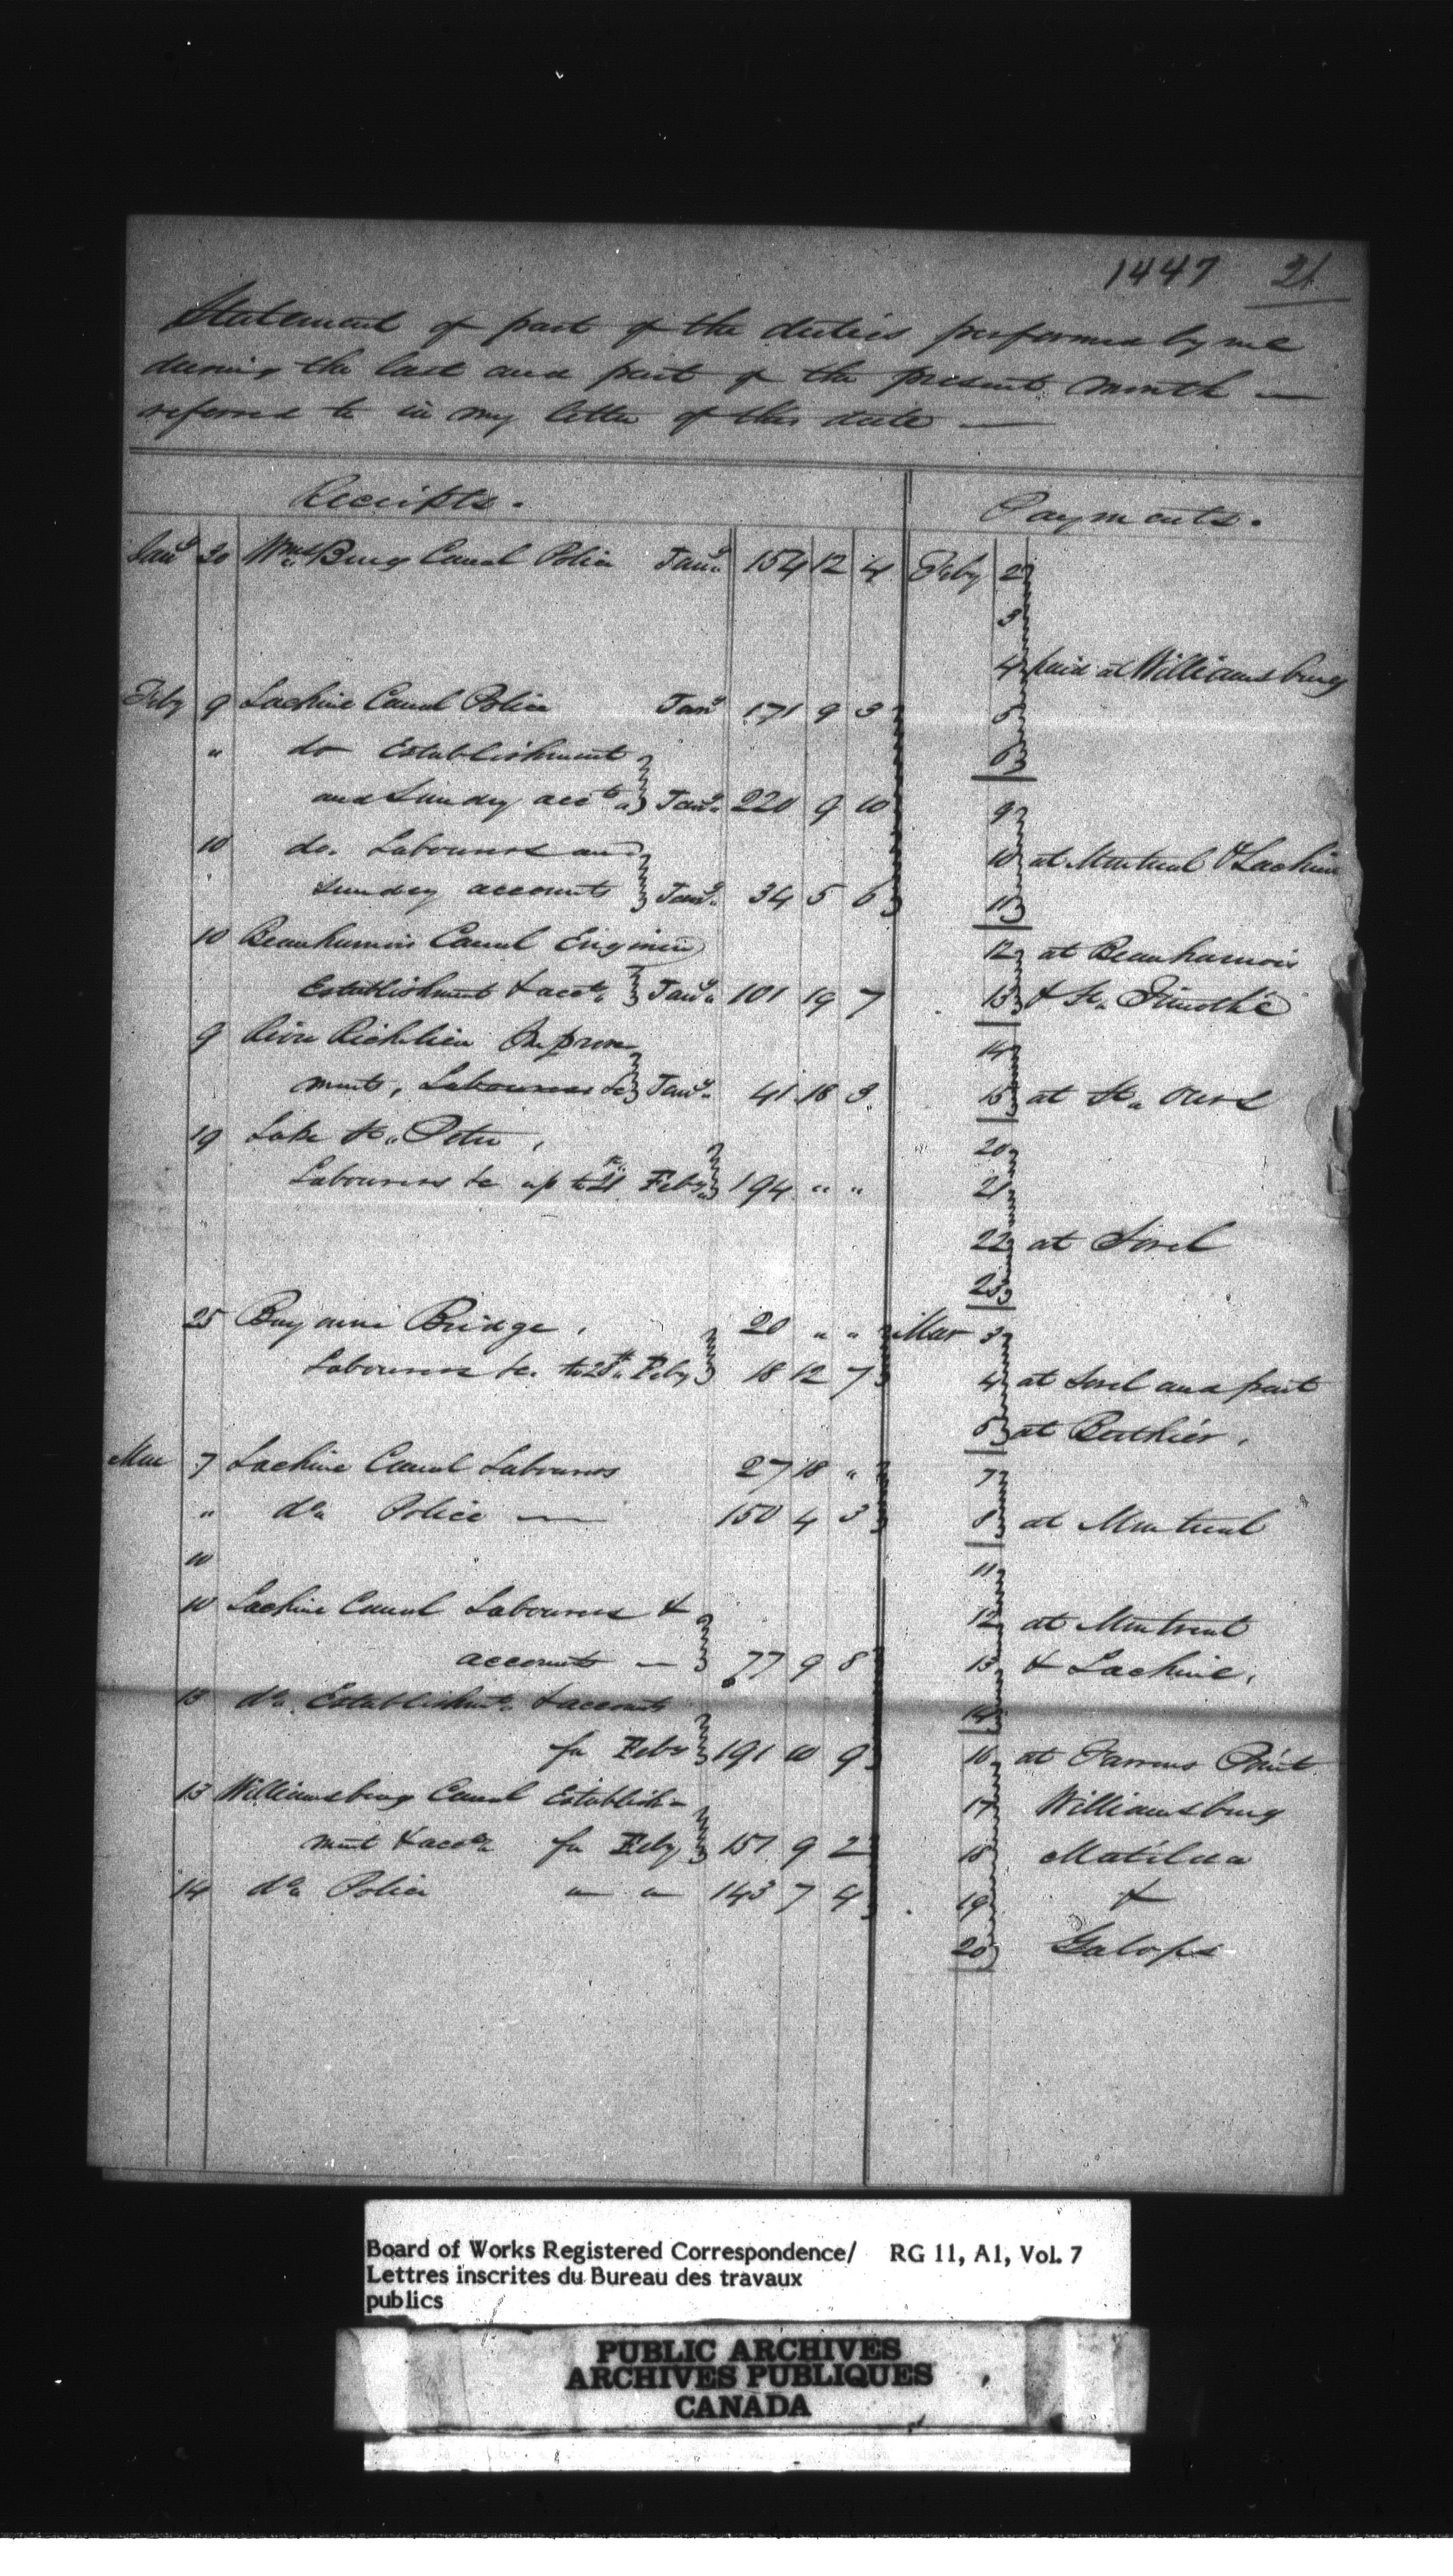 1447 21
Statement of part of the duties performed by me
during the last and part of the present month —
referred to in my letter of this date —
Receipts. Payments.
Jany 30 Wms Burg Canal Police Jany. 154 12 4 Feby 2
3
4 paid at Williamsburg
Feby 9 Lachine Canal Police Jany 171 9 3 5
" do Establishment 6
and Sundry accts Jany. 220 9 10 9
10 do. Labourers and 10 at Montreal & Lachine
Sundry accounts Jany. 34 5 6 11
10 Beauharnois Canal Engineer 12 at Beauharnois
Establishment & accts Jany. 101 19 7 13 & St. Timothé
9 River Richlieu Improve 14
ments, Labourers &c Jany. 41 18 3 15 at St. Ours
19 Lake St. Peter, 20
Labourers &c up to 21st Feby 194 " " 21
22 at Sorel
23
25 Bayonne Bridge, 20 " " Mar 3
Labourers &c. to 28th Feby 18 12 7 4 at Sorel and part
5 at Berthier.
Mar 7 Lachine Canal Labourers 27 18 " 7
" do Police — 150 4 3 8 at Montreal
10 11
10 Lachine Canal Labourers & 12 at Montreal
accounts — 77 9 8 13 & Lachine.
13 do Establishmt & accounts 14
for Feby 191 10 9 16 at Farrans Point
13 Williamsburg Canal Establish- 17 Williamsburg
ment & accts for Feby 151 9 2 18 Matilda
14 do Police " " 143 7 4 19 &
20 Galops
Board of Works Registered Correspondence/ RG 11, A1, Vol. 7
Lettres inscrites du Bureau des travaux
publics
PUBLIC ARCHIVES
ARCHIVES PUBLIQUES
CANADA